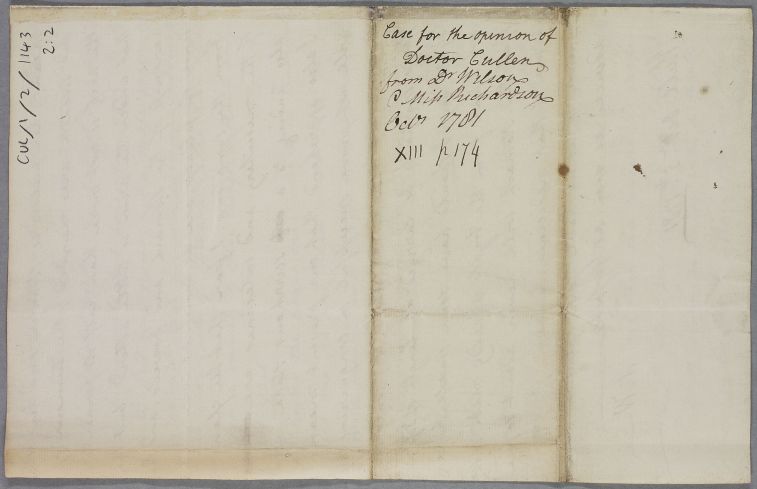 CUL/1/2/1143
2:2
Case for the opinion of
Doctor Cullen
from Dr Wilson
C Miss Richardson
Octr 1781
XIII p 174